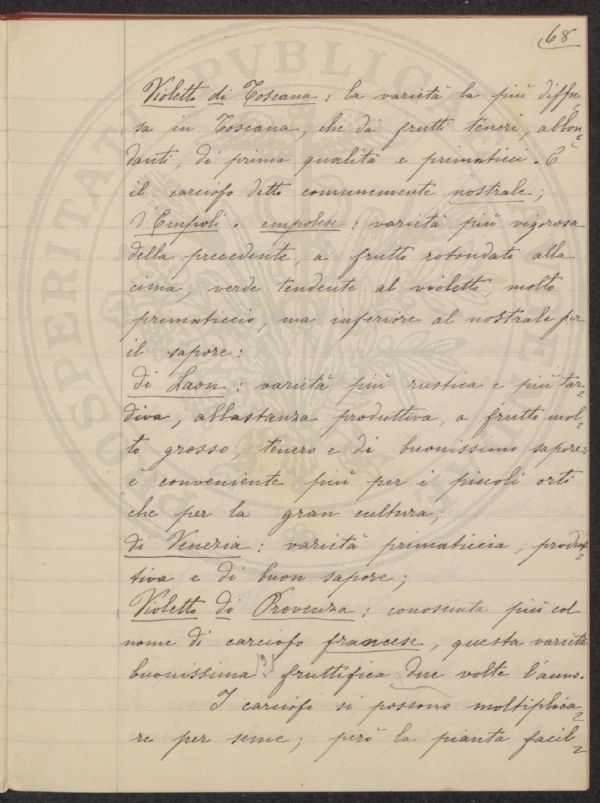 68
Violetto di Toscana: la varietà la più diffu=
sa in Toscana, che dà frutti teneri, abbon=
danti, di prima qualità e primaticci. È
il carciofo detto comunemente nostrale;
d'Empoli o empolese: varietà più vigorosa
della precedente, a frutto rotondato alla
cima, verde tendente al violetto, molto
primaticcio, ma inferiore al nostrale per
il sapore:
di Laon: varietà più rustica e più tar=
diva, abbastanza produttiva, a frutto mol=
to grosso, tenero e di buonissimo sapore:
è conveniente più per i piccoli orti
che per la gran cultura;
di Venezia: varietà primaticcia, produt=
tiva e di buon sapore;
Violetto di Provenza: conosciuta più col
nome di carciofo francese, questa varietà
buonissima fruttifica due volte l'anno.
I carciofi si possono moltiplica=
re per seme; però la pianta facil=
PROSPERITATI PVBLICAE